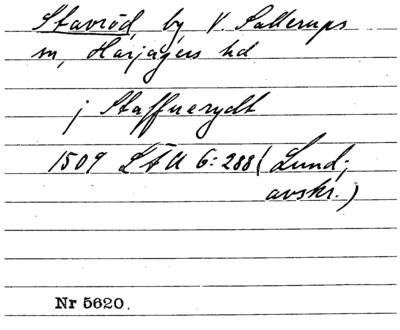 Stavröd, by, V. Sallerups
sn, Harjagers hd
j Staffuerydt
1509 LÄU 6:288 (Lund;
avskr.)
Nr 5620.